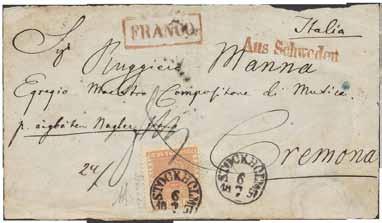 Italia
FRANCO.
Aus Schweden
Sr Ruggiero Manna
Egregio Maestro Compositore di Musica.
Cremona
STOCKHOLM
6
7
STOCKHOLM
6
7